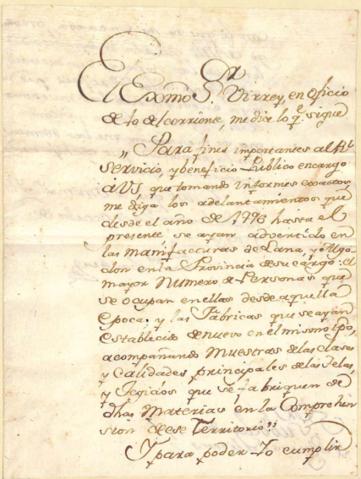 El Exmo. Sr. Virrey, en Oficio
de 10 del corriente, me dice lo q.e sigue
„Para fines importantes al Rl.
servicio, y beneficio Público encargo
a VS, que tomando informes exactos
me diga los adelantamientos que
desde el año de 1776 hasta el
presente se ayan advertido en
las manifacturas de Lana, y Algo
don en la Provincia de su cargo: el
mayor Numero de Personas que
se ocupan en ellas desde aquella
Epoca: y las Fabricas que se ayan
establecido de nuevo en el mismo tpo,
acompañando Muestras de las clases
y Calidades principales de las Telas,
y Tegidos que se fabriquen de
dhas Materias en la Comprehen
sion de ese Territorio„
Y para poder Yo cumplir